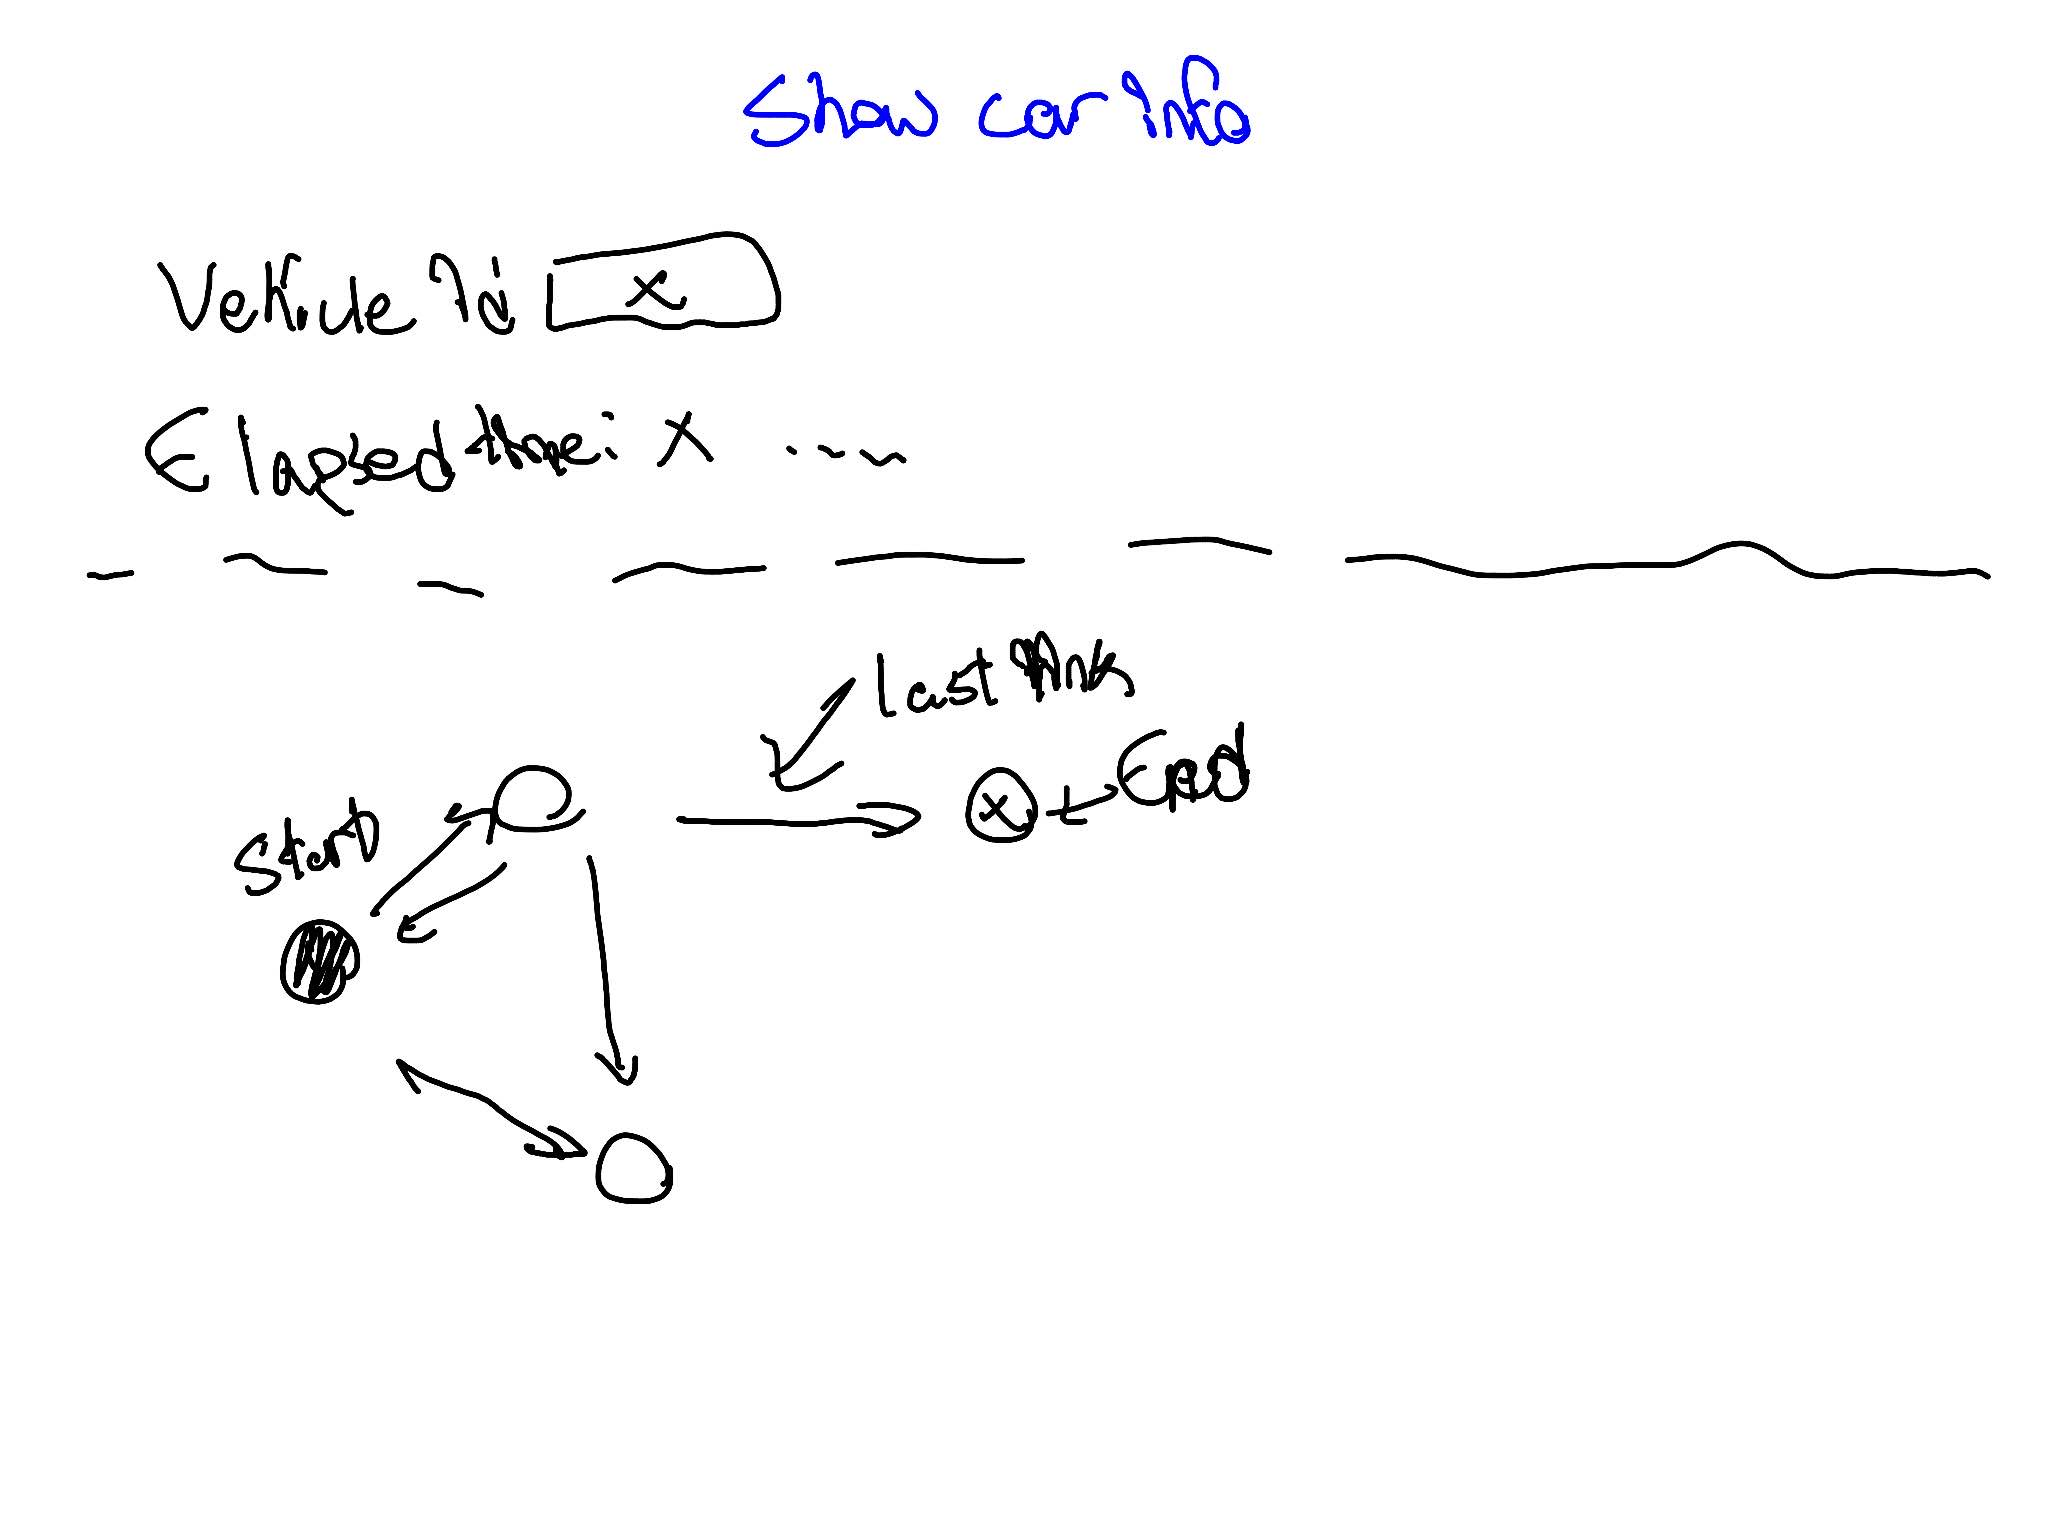 Show car info
Vehicule Id x
Elapsed time: x ....
last link
End
x
Start